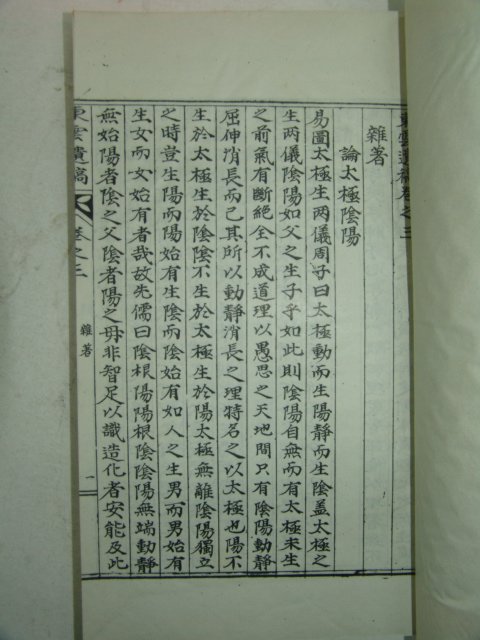 東雲遺稿卷之三
雜著
論太極陰陽
易圖太極生两儀周子曰太極動而生陽静而生陰盖太極之
生两儀陰陽如父之生子乎如此則陰陽自無而有太極未生
之前氣有斷絕全不成道理以愚思之天地間只有陰陽動静
屈伸消長而已其所以動静消長之理特名之以太極也陽不
生於太極生於陰陰不生於太極生於陽太極無離陰陽獨立
之時豈生陽而陽始有生陰而陰始有如人之生男而男始有
生女而女始有者哉故先儒曰陰根陽陽根陰陰陽無端動静
無始陽者陰之父陰者陽之母非智足以識造化者安能及此
東雲遺稿
卷之三
雜著
一